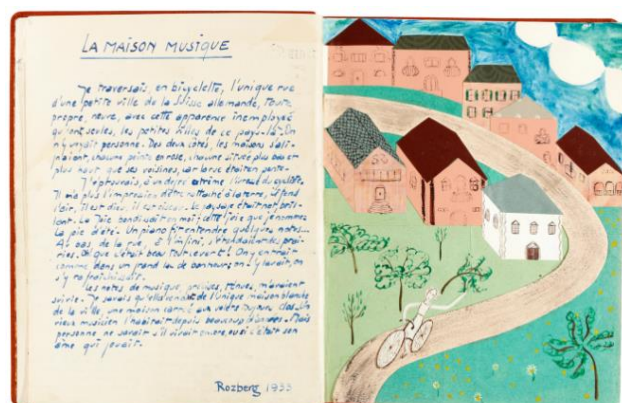 LA MAISON MUSIQUE
Je traversais, en bicyclette, l'unique rue
d'une petite ville de la Suisse allemande, toute
propre, neuve, avec cette apparence inemployée
qu'ont seules, les petites villes de ce pays-là. On
n'y voyait personne. Des deux côtés, les maisons s'ali-
gnaient, chacune peinte en rose, chacune située plus bas et
plus haut que ses voisines, car la rue était en pente.
J'éprouvais, à un degré extrême, l'ivresse du cycliste.
Il n'a plus l'impression d'être rattaché à la terre. Il fend
l'air, il est dieu, il est oiseau. Le paysage était
La joie bondissait en moi; cette joie que je nomme
la joie d'été. Un piano fit entendre quelques notes...
Au bas de la rue, à l'infini, s'étendaient des prai-
ries. Dieu que c'était beau tout ce vert! On y entrait
comme dans un grand lac de bonheur; on s'y lavait, on
s'y rafraîchissait.
Les notes de musique, précises, ténues, m'avaient
suivie. Je savais qu'elles venaient de l'unique maison blanche
de la ville, une maison carrée aux volets toujours clos. Un
vieux musicien l'habitait depuis beaucoup d'années. Mais
personne ne savait s'il vivait encore, ou si c'était son
âme qui jouait.
Rozberg 1933